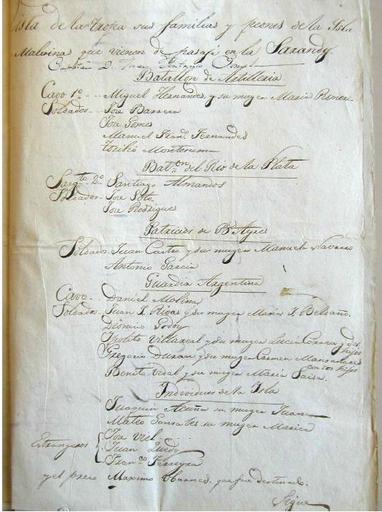 Lista de la Tropa sus familias y peones de la Isla
Malvinas que vienen de pasaje en la Sarandy
Batallon de Artilleria
Cavo 1º Miguel Hernandes y su muger Maria Romero
Soldados Jose Barrera
Jose Gomes
Manuel Fernandes
Toribio Montesuma
Bat.on del Rio de la Plata
Sarg.to 2º Santiago Almandos
Soldados Jose Soto
Jose Rodrigues
Patricios de B. Ayres
Soldado Juan Castro y su muger Manuela Navarro
Antonio Garcia
Guardia Argentina
Cavo Daniel Molina
Soldados Juan J. Rivas y su muger Maria I. Beldaño
Dionicio Godoy
Hipolito Villareal y su muger Lucia Correa y dos hijos
Gregorio Duran y su muger Carmen Manzanares con dos hijos
Benito Vidal y su muger Maria Saisa
Individuos de la Isla
Joaquin Acuña su muger Juana
Mateo Gonsales su muger Marica
Estrangeros Jose Viel
Juan
Fran.co Ferreyra
y el preso Maximo que fue destinado
Sigue